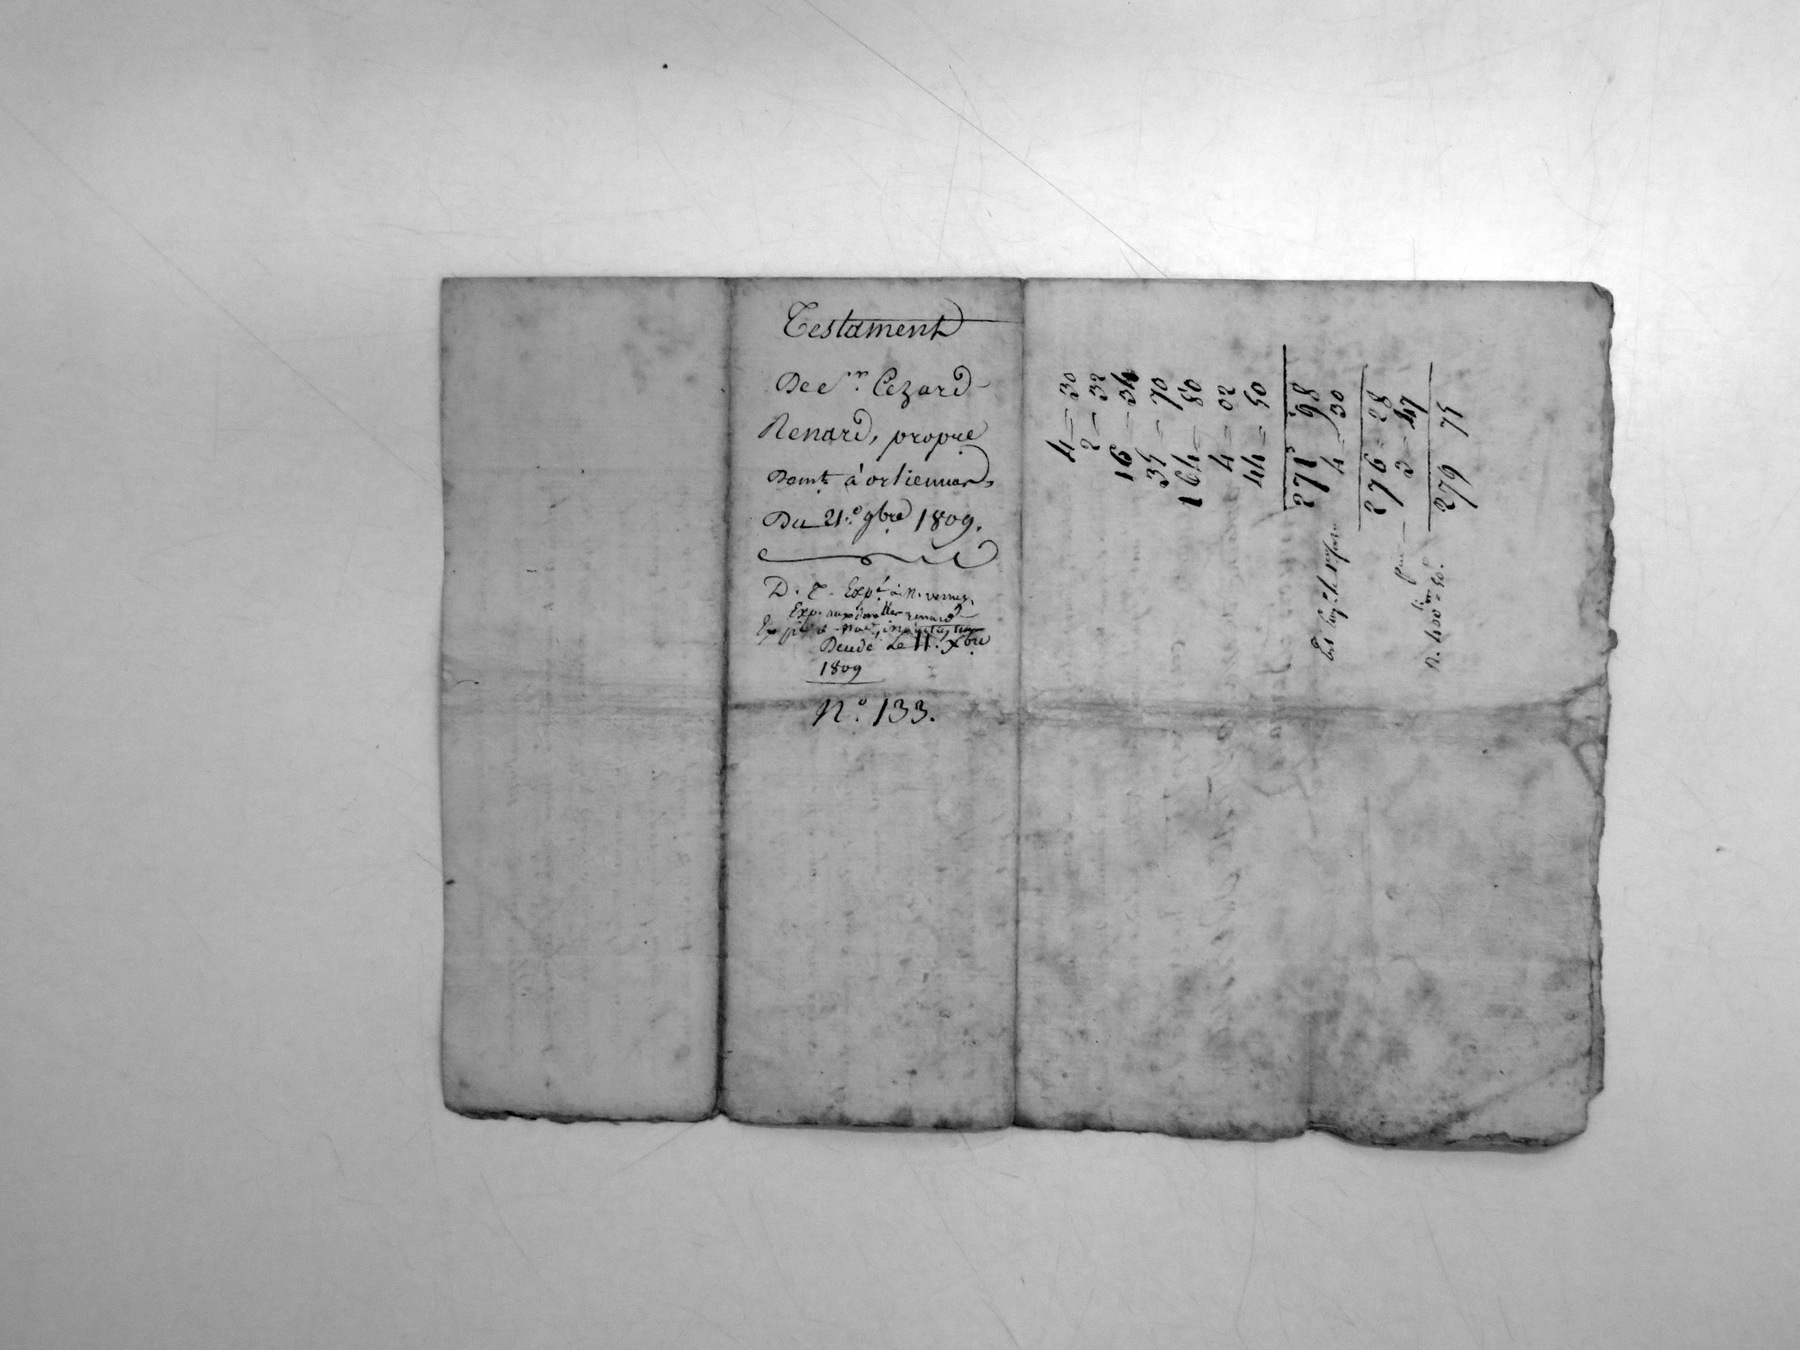 Testament
De Sr. Cezard
Renard, propre
Domt. à ortiennar,
Du 21.e 9bre 1809.
D. T. Expé. à M. vernes,
Exp. aux dmlles renard
Décédé Le 11. Xbre
1809
N.o 133.
4 = 30
2 = 32
16 = 34
35 = 70
164 = 80
4 = 02
44 = 50
271 98
4 = 30
276 = 28
3 = 47
279 75